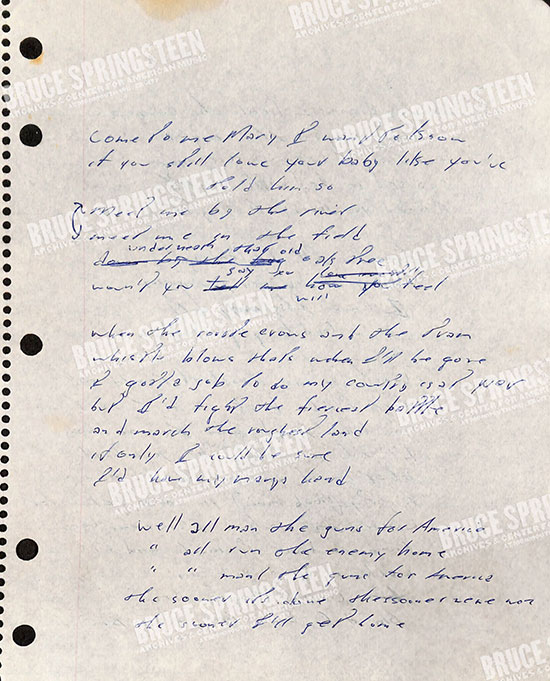 BRUCE SPRINGSTEEN
Come to me Mary I
if you still love your baby like you've
told him so
meet me by the river
meet me in the field
underneath that old
down by the oak tree
say
won't you tell me how you feel
will
when the crows and the train
whistle blows thats when I'll be gone
I gotta job to do my country is at war
but I'd fight the fiercest battle
and march the roughest land
if only I could be sure
I'd have my marys hand
Well all man the guns for America
" all run the enemy home
" " man the guns for America
the sooner its done the sooner we've won
the sooner I'll get home